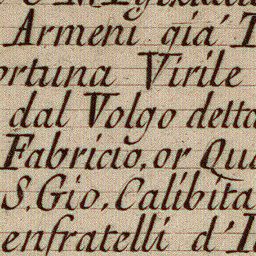 Armeni già
ortuna Virile
dal Volgo detto
Fabricio, or Qua
S. Gio. Calibita
enfratelli d'I